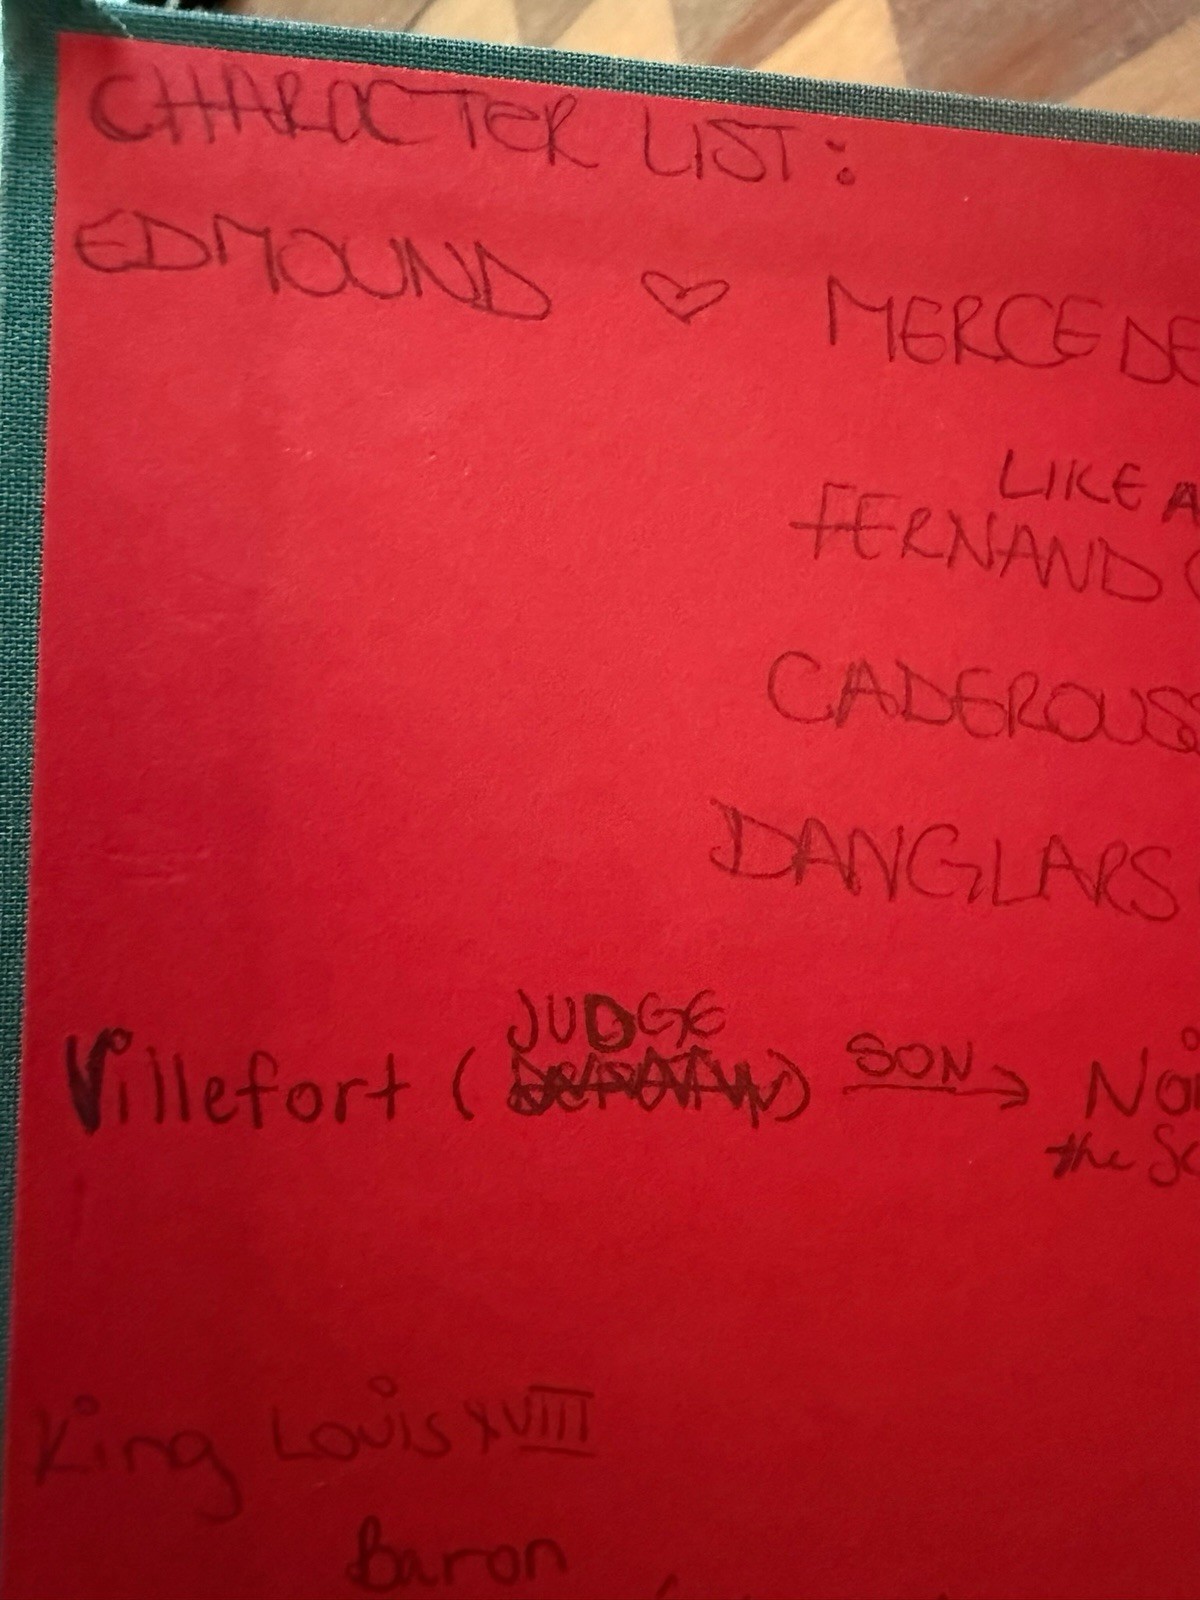 CHARACTER LIST:
EDMOUND ♡ MERCEDE
LIKE A
FERNAND
CADEROUSS
DANGLARS
JUDGE
Villefort ( ) SON → Noi
the Sc
King Louis XVIII
Baron